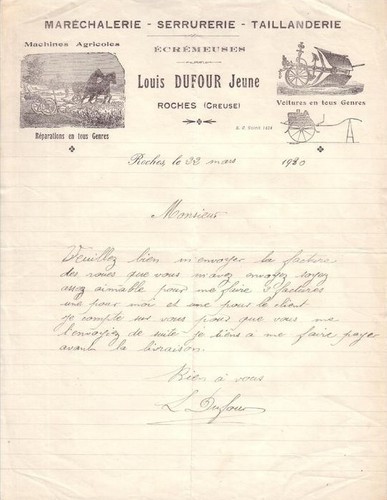 MARÉCHALERIE - SERRURERIE - TAILLANDERIE
Machines Agricoles
ÉCRÉMEUSES
Louis DUFOUR Jeune
ROCHES (CREUSE)
Voitures en tous Genres
Réparations en tous Genres
Roches, le 22 mars 1930
Monsieur
Veuillez bien m'envoyer la facture
des roues que vous m'avez envoyez soyez
assez aimable pour me faire 2 factures
une pour moi et une pour le client
je compte sur vous pour que vous me
l'envoyiez de suite je tiens a me faire payer
avant la livraison.
Bien à vous
L. Dufour